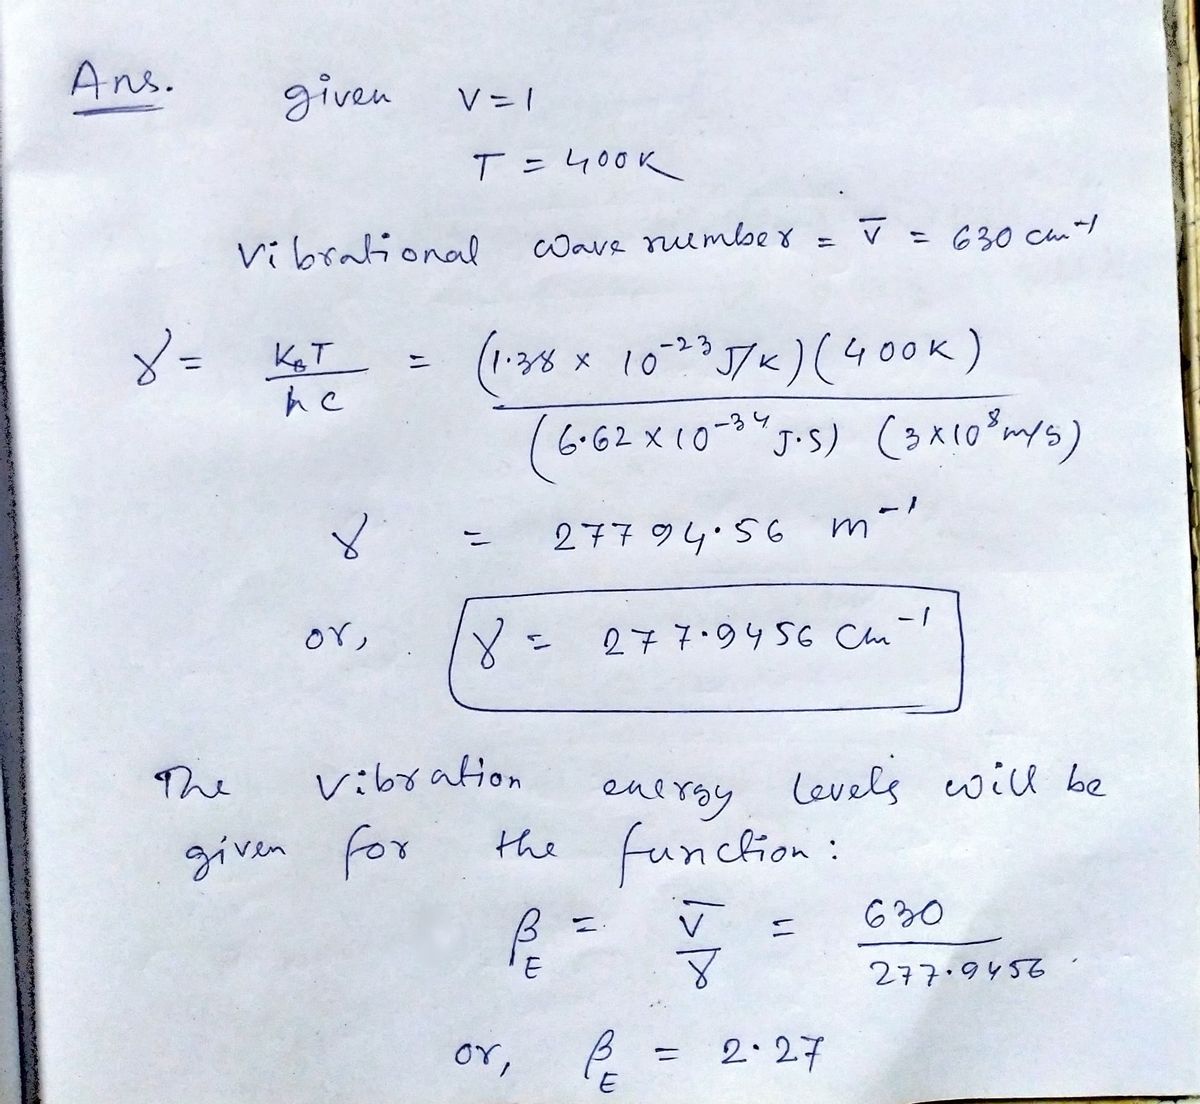 Ans. given v=1
T = 400K
Vibrational wave number = v̅ = 630 cm⁻¹
γ = K_BT / hc = (1.38 × 10⁻²³ J/K)(400K) / (6.62 × 10⁻³⁴ J.S) (3×10⁸ m/s)
γ = 27794.56 m⁻¹
or, γ = 277.9456 cm⁻¹
The vibration energy levels will be
given for the function:
β_E = v̅ / γ = 630 / 277.9456
or, β_E = 2.27